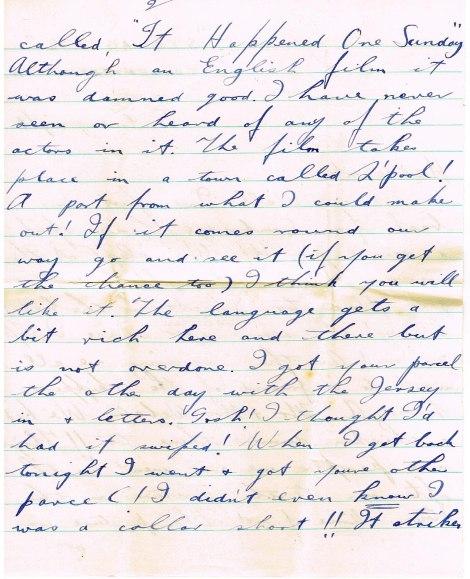 2
called, "It Happened One Sunday"
Although an English film it
was damned good. I have never
seen or heard of any of the
actors in it. The film takes
place in a town called L'pool!
A port from what I could make
out! If it comes round our
way go and see it (if you get
the chance too) I think you will
like it. The language gets a
bit rich here and there but
is not overdone. I got your parcel
the other day with the Jersey
in & letters. Gosh! I thought I'd
had it swiped! When I get back
tonight I went & got youre other
parcel! I didn't even know I
was a collar short!! It strikes